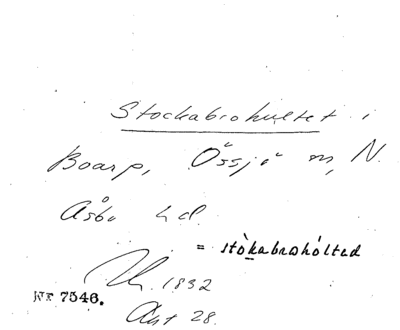 Stockabrohultet i
Boarp, Össjö sn, N.
Åsbo hd.
= stòkabrohóltad
1832
Akt 28.
NF 7546.